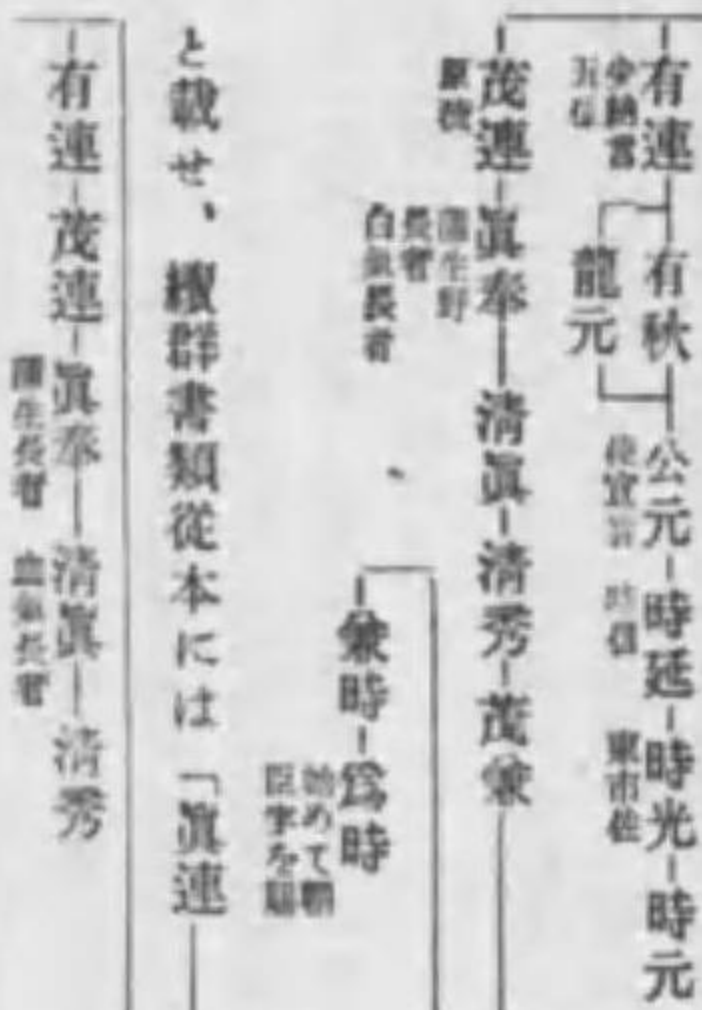 有連―有秋―公元―時延―時光―時元
少納言
五位
龍元
時信
東市佐
茂連―眞奉―清眞―清秀―茂兼
蒲生野
長者
兼時―爲時
始めて
臣字を
と載せ、續群書類從本には「眞連
有連―茂連―眞奉―清眞―清秀
蒲生長者